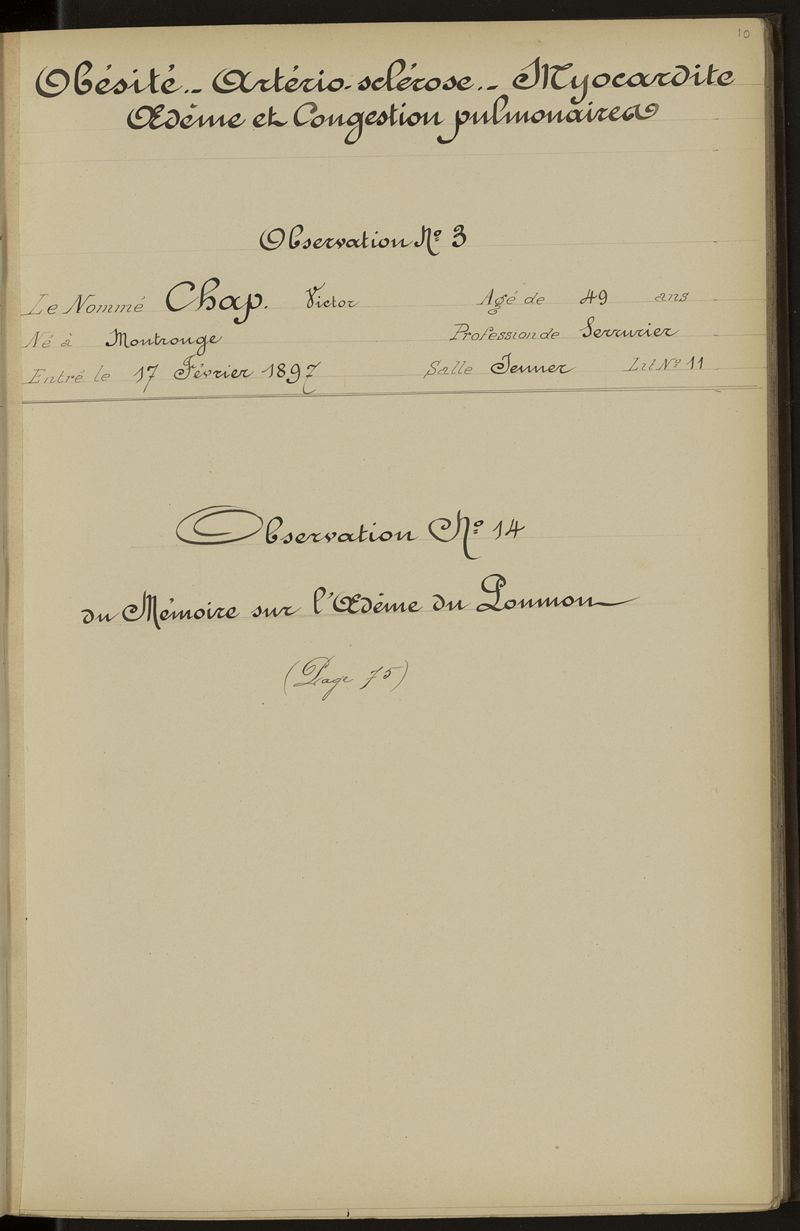 10
Obésité.- Artério-sclérose.- Myocardite
Œdème et Congestion pulmonaires
Observation No. 3
Le Nommé Chap. Victor Agé de 49 ans
Né à Montrouge Profession de Serrurier
Entré le 17 Février 1897 Salle Jenner Lit No. 11
Observation No. 14
du Mémoire sur l'Œdème du Poumon
(Page 75)